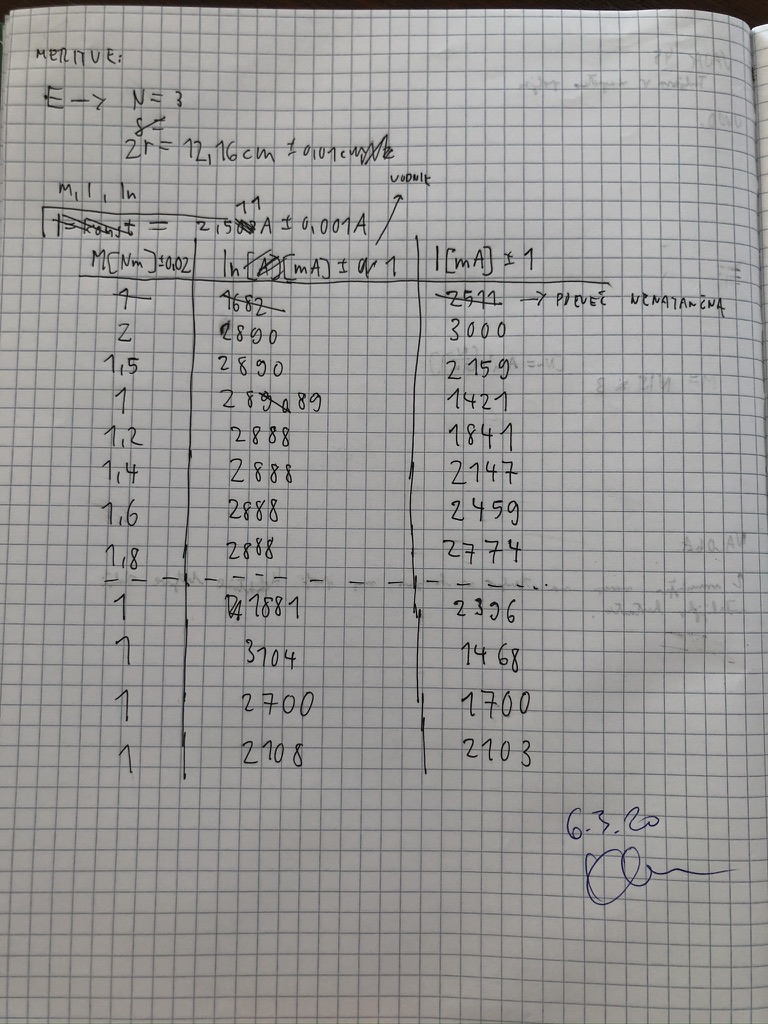 MERITVE:
E → N = 3
2r = 12,16 cm ± 0,01 cm
M, I, In
I = konst = 2,511 A ± 0,001 A
VODNIK
M[Nm] ±0,02 In [mA] ± 1 I [mA] ± 1
1 1682 2511 → PREVEČ NENATANČNA
2 2890 3000
1,5 2890 2159
1 2889 1421
1,2 2888 1841
1,4 2888 2147
1,6 2888 2459
1,8 2888 2774
1 1881 2396
1 3104 1468
1 2700 1700
1 2108 2103
6.3.20